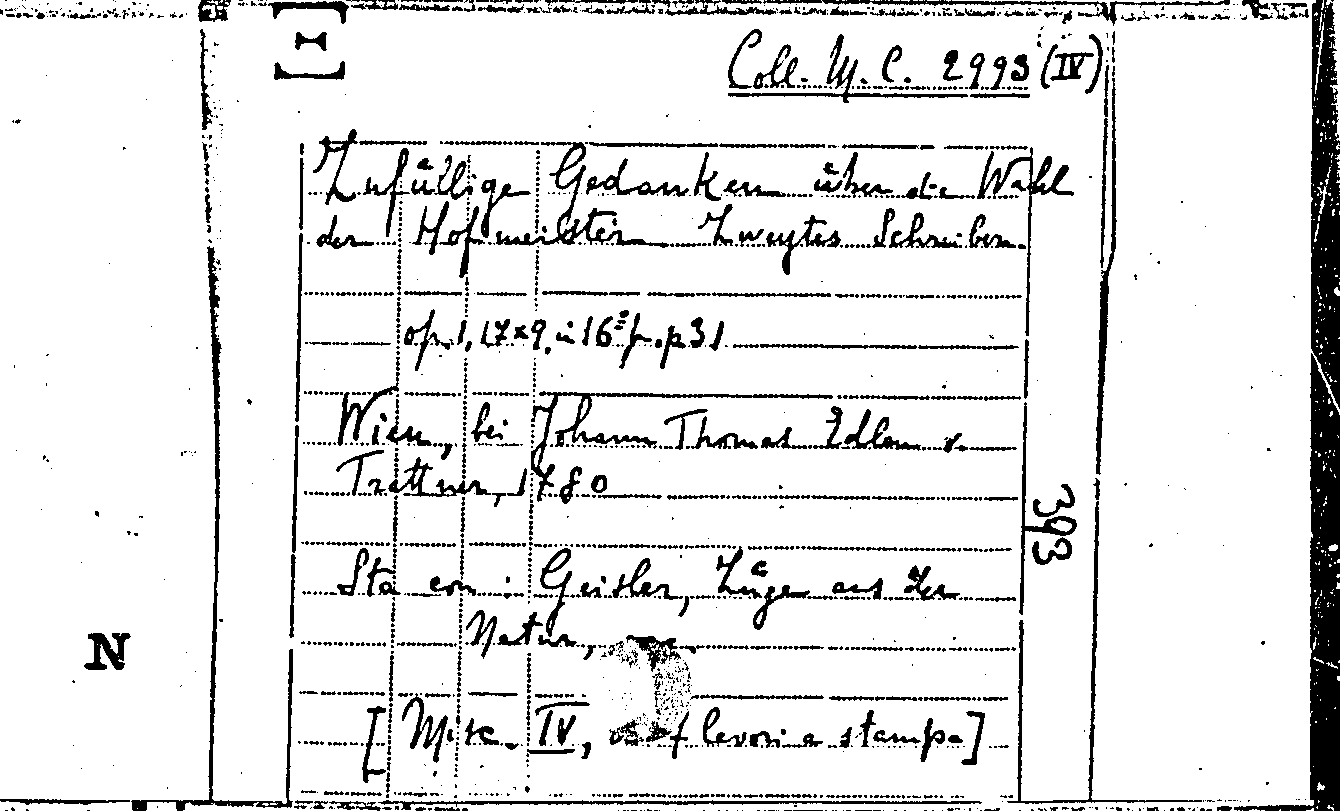 Coll. M. C. 2993 (IV)
Zufällige Gedanken über die Wahl
der Hofmeister. Zweytes Schreiben.
op. 1, 17x9, in 16º p. p 31
Wien, bei Johann Thomas Edlen v.
Trattner, 1780
393
Sta con: Geisler, Züge aus der
Natur,
N
[Misc. IV, lavori a stampa]